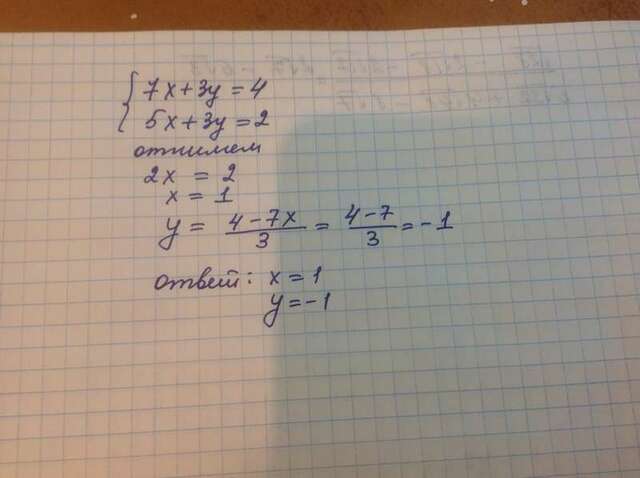 7x+3y=4
5x+3y=2
отнимем
2x = 2
x = 1
y = \frac{4-7x}{3} = \frac{4-7}{3} = -1
ответ: x = 1
y = -1